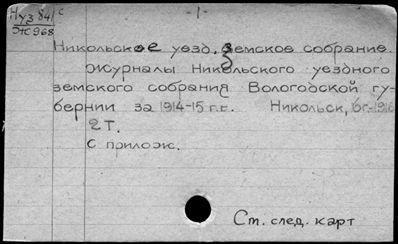 Нуз 841с
Ж968
- 1 -
Никольское уезд. земское собрание.
Журналы Никольского уездного
земского собрания Вологодской гу-
бернии за 1914-15 г.г. Никольск, 6г.-1916
2 т.
С прилож.
См. след. карт